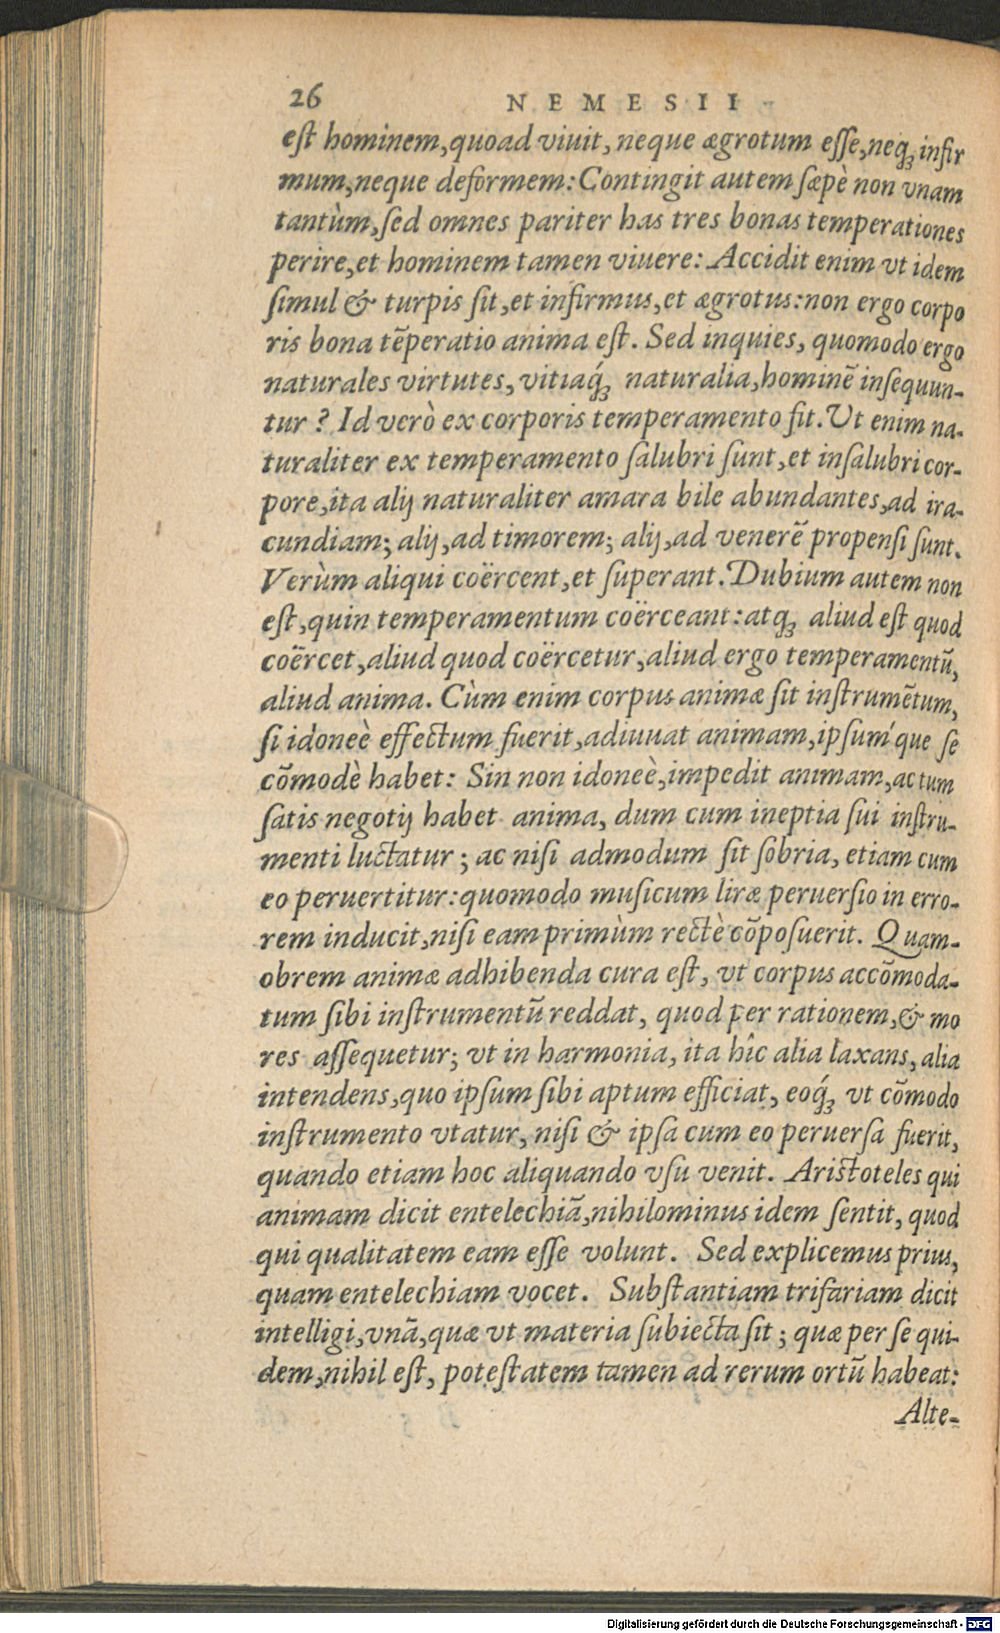 26 NEMESII
est hominem, quoad viuit, neque ægrotum esse, neq; infir
mum, neque deformem: Contingit autem sæpè non vnam
tantùm, sed omnes pariter has tres bonas temperationes
perire, et hominem tamen viuere: Accidit enim vt idem
simul & turpis sit, et infirmus, et ægrotus: non ergo corpo
ris bona tẽperatio anima est. Sed inquies, quomodo ergo
naturales virtutes, vitiaq́; naturalia, hominẽ insequun-
tur? Id verò ex corporis temperamento fit. Ut enim na-
turaliter ex temperamento salubri sunt, et insalubri cor-
pore, ita alij naturaliter amara bile abundantes, ad ira-
cundiam; alij, ad timorem; alij, ad venerẽ propensi sunt.
Verùm aliqui coërcent, et superant. Dubium autem non
est, quin temperamentum coërceant: atq; aliud est quod
coërcet, aliud quod coërcetur, aliud ergo temperamentũ,
aliud anima. Cùm enim corpus animæ sit instrumẽtum,
si idoneè effectum fuerit, adiuuat animam, ipsumq́ue se
cõmodè habet: Sin non idoneè, impedit animam, ac tum
satis negotij habet anima, dum cum ineptia sui instru-
menti luctatur; ac nisi admodum sit sobria, etiam cum
eo peruertitur: quomodo musicum liræ peruersio in erro-
rem inducit, nisi eam primùm rectè cõposuerit. Quam-
obrem animæ adhibenda cura est, vt corpus accõmoda-
tum sibi instrumentũ reddat, quod per rationem, & mo
res assequetur; vt in harmonia, ita hîc alia laxans, alia
intendens, quo ipsum sibi aptum efficiat, eoq́; vt cõmodo
instrumento vtatur, nisi & ipsa cum eo peruersa fuerit,
quando etiam hoc aliquando vsu venit. Aristoteles qui
animam dicit entelechiã, nihilominus idem sentit, quod
qui qualitatem eam esse volunt. Sed explicemus prius,
quam entelechiam vocet. Substantiam trifariam dicit
intelligi, vnã, quæ vt materia subiecta sit; quæ per se qui-
dem, nihil est, potestatem tamen ad rerum ortũ habeat:
Alte-
Digitalisierung gefördert durch die Deutsche Forschungsgemeinschaft - DFG